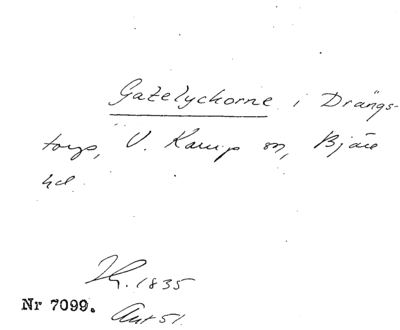 Gatelyckorne i Drängs-
torps, V. Karup sn, Bjäre
hd.
1835
Nr 7099.
Akt 51.